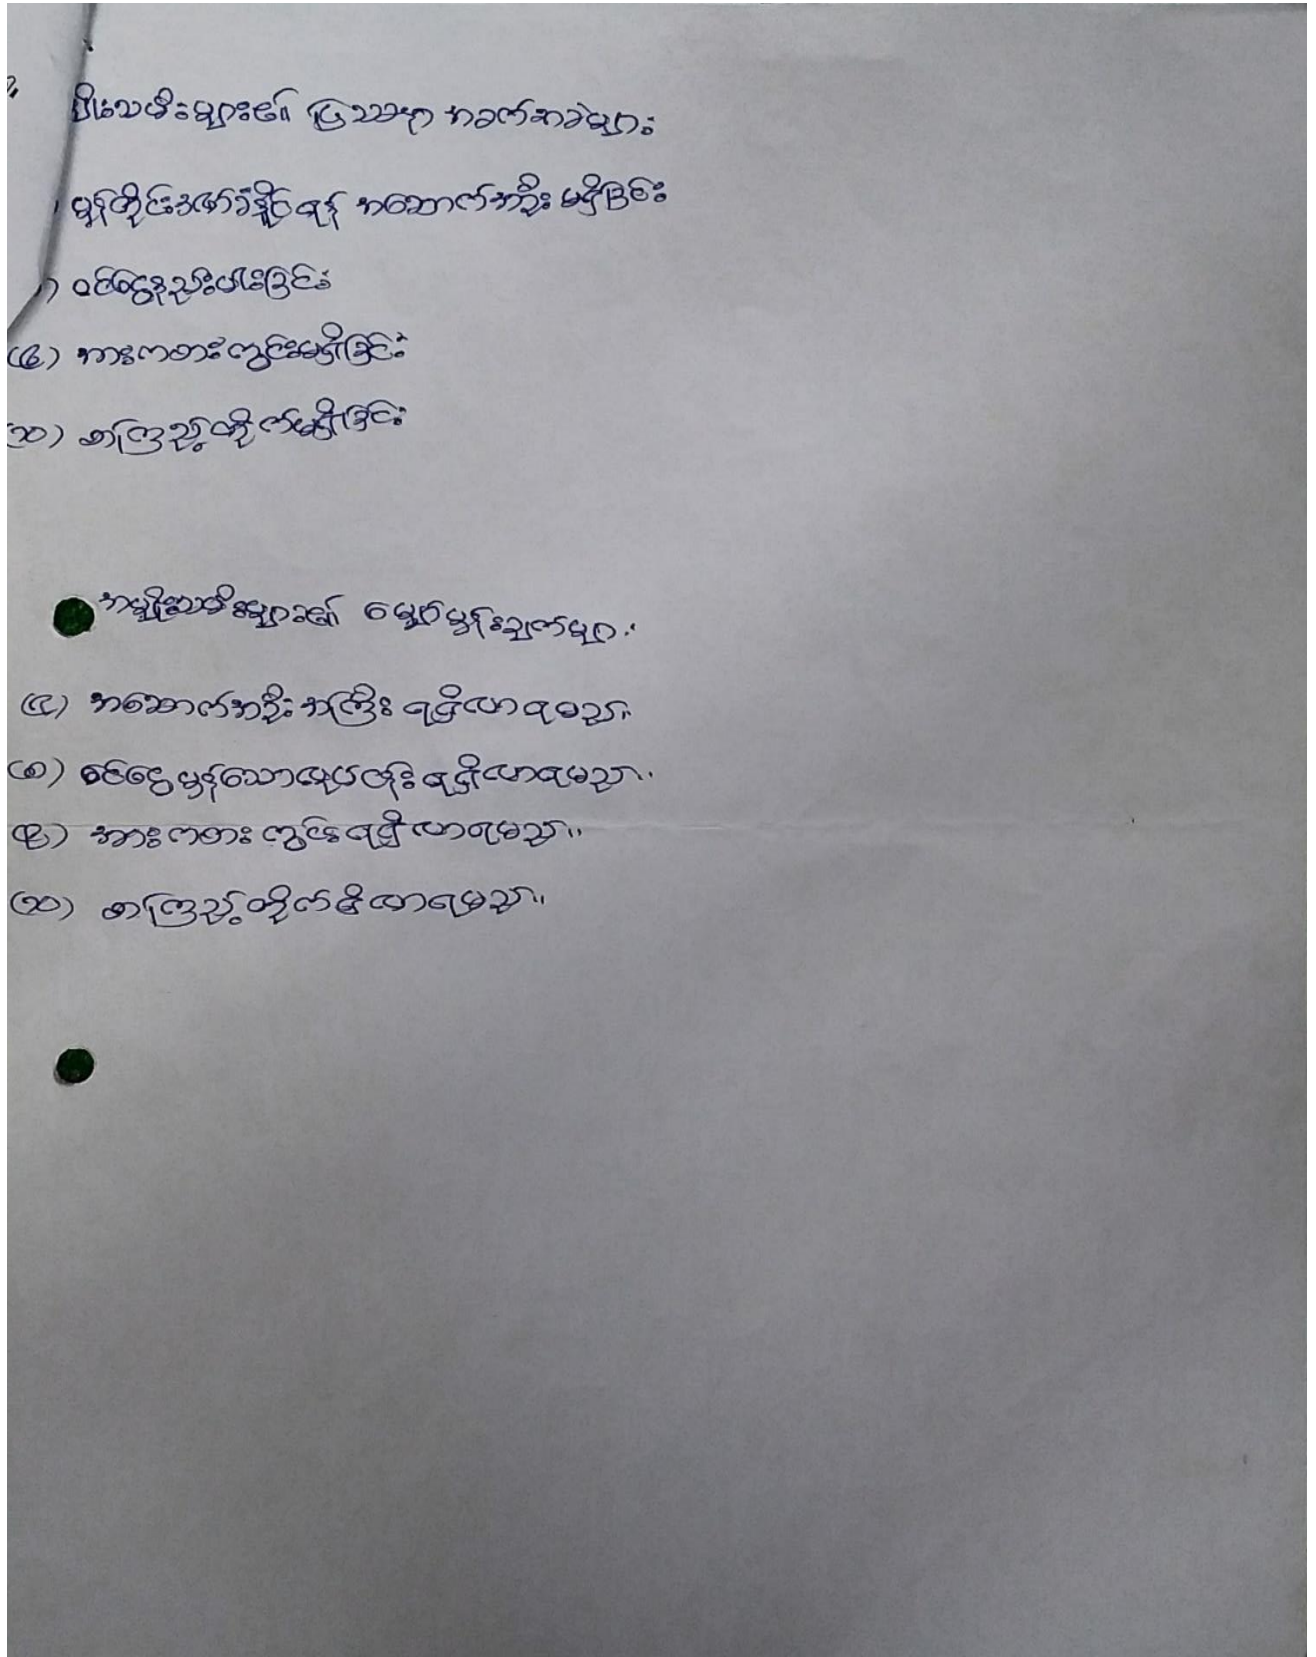 မျိုးသမီးများ၏ ပြဿနာ အခက်အခဲများ
မုန်တိုင်းဒဏ်ခံနိုင်ရန် အဆောက်အဦး မရှိခြင်း
) ဝင်ငွေနည်းပါးခြင်း
(၄) အားကစားကွင်းမရှိခြင်း
(၁၁) စာကြည့်တိုက်မရှိခြင်း
အမျိုးသမီးများ၏ မျှော်မှန်းချက်များ
(၄) အဆောက်အဦး အကြီး ရရှိလာရမည်။
(၈) ဝင်ငွေမှန်သောလုပ်ငန်း ရရှိလာရမည်။
(၉) အားကစားကွင်းရရှိလာရမည်။
(၁၁) စာကြည့်တိုက်ရှိလာရမည်။